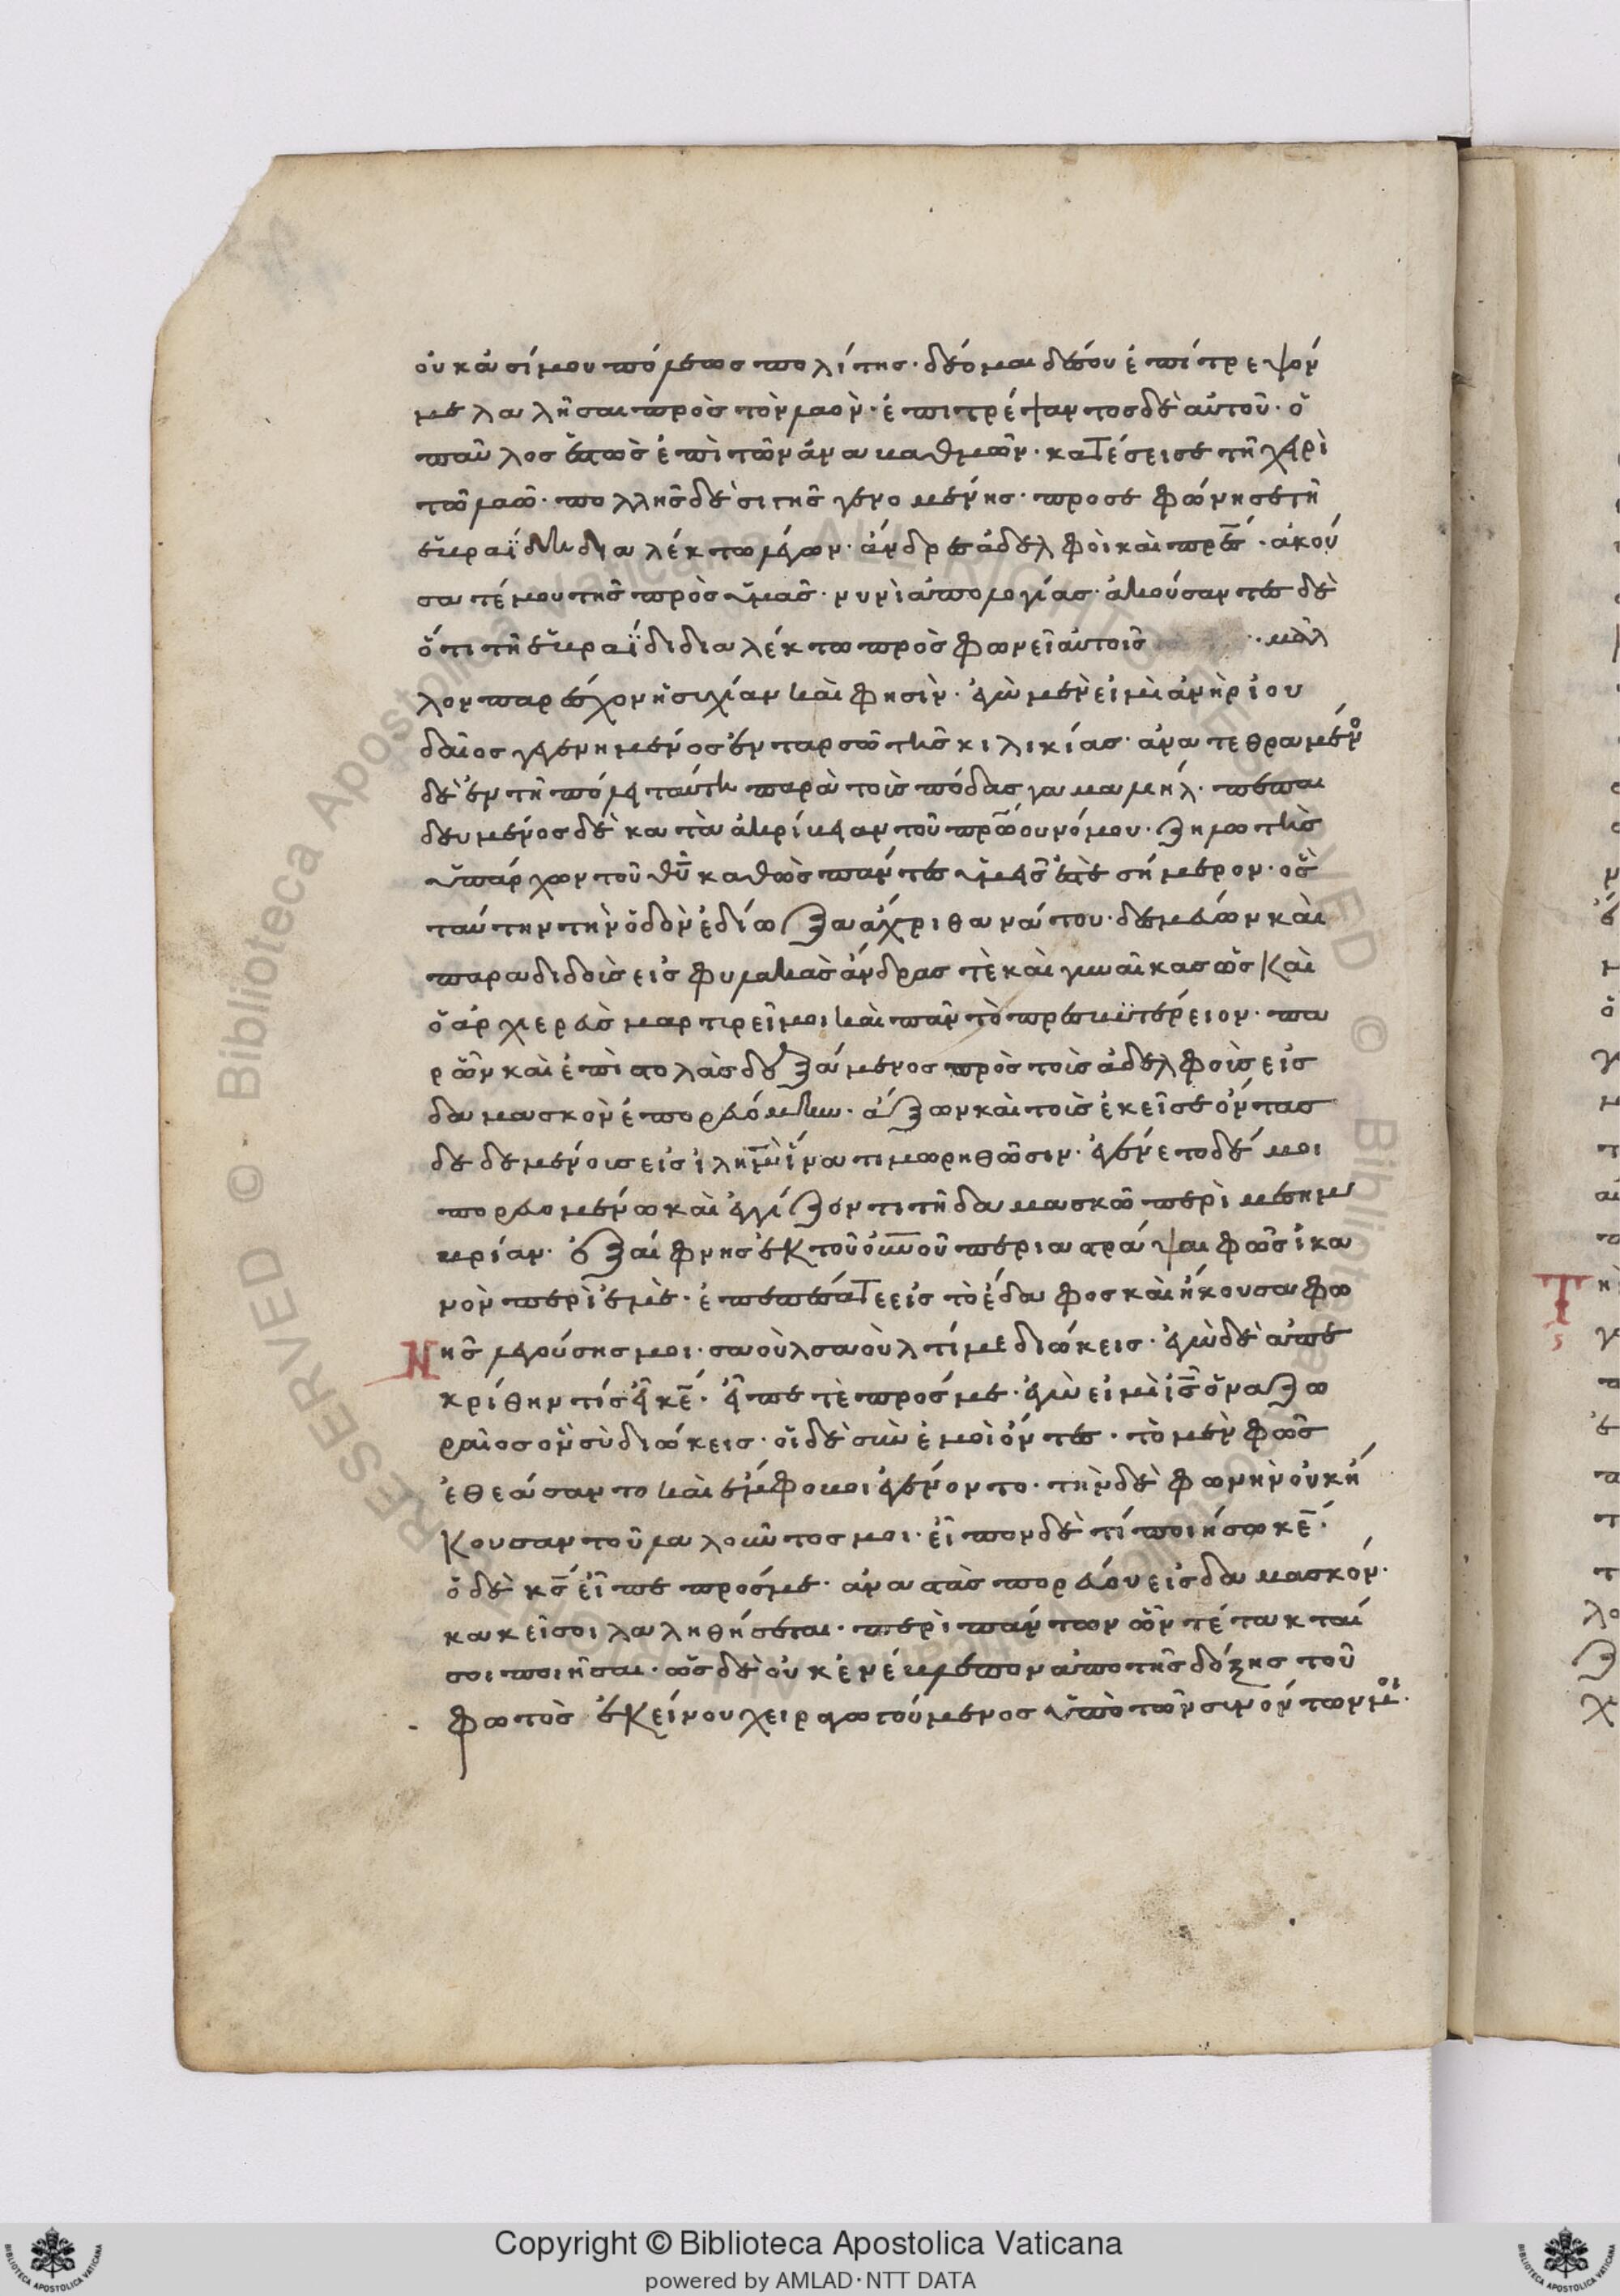 οὐκ ἀσίμου πόλεως πολίτης· δέομαι δέ σου ἐπίτρεψόν
με λαλῆσαι πρὸς τὸν λαὸν· ἐπιτρέψαντος δὲ αὐτοῦ· ὁ
παῦλος ἑστὼς ἐπὶ τῶν ἀναβαθμῶν· κατέσεισε τῆ χειρὶ
τῶ λαῶ· πολλῆς δὲ σιγῆς γενομένης· προσεφώνησε τῆ
ἑβραΐδι διαλέκτω λέγων· ἄνδρες ἀδελφοὶ καὶ πρ̅ές· ἀκού
σατέ μου τῆς πρὸς ὑμᾶς· νυνὶ ἀπολογίας· ἀκούσαντες δὲ
ὅτι τῆ ἑβραΐδι διαλέκτω προσφωνεῖ αὐτοῖς μᾶλ
λον παρέσχον ἡσυχίαν καὶ φησὶν· ἐγὼ μὲν εἰμὶ ἀνὴρ ἰου
δαῖος γεγενημένος ἐν ταρσῶ τῆς κιλικίας· ἀνατεθραμέν
δὲ ἐν τῆ πόλει ταύτη παρὰ τοὺς πόδας γαμαλιήλ· πεπαι
δευμένος δὲ κατὰ ἀκρίβειαν τοῦ πρώου νόμου· ζηλωτὴς
ὑπάρχων τοῦ θ̅υ καθὼς πάντες ὑμεῖς ἐστὲ σήμερον· ὃς
ταύτην τὴν ὁδὸν ἐδίωξα ἄχρι θανάτου· δεσμεύων καὶ
παραδιδοὺς εἰς φυλακὰς ἄνδρας τὲ καὶ γυναῖκας ὡς καὶ
ὁ ἀρχιερεὺς μαρτυρεῖ μοι καὶ πᾶν τὸ πρεσβυτέρειον· πα
ρ ὧν καὶ ἐπιστολὰς δεξάμενος πρὸς τοὺς ἀδελφοὺς εἰς
δαμασκὸν ἐπορευόμην· ἄξων καὶ τοὺς ἐκεῖσε ὄντας
δεδεμένους εἰς ἰλη̅μ ἵνα τιμωρηθῶσιν· ἐγένετο δέ μοι
πορευομένω καὶ ἐγγίζοντι τῆ δαμασκῶ περὶ μεσημ
βρίαν· ἐξαίφνης ἐκ τοῦ ου̅νου περιαστράψαι φῶς ἱκα
νὸν περὶ ἐμὲ· ἔπεσά τε εἰς τὸ ἔδαφος καὶ ἤκουσα φω
νῆς λεγούσης μοι· σαοὺλ σαοὺλ τί με διώκεις· ἐγὼ δὲ ἀπε
κρίθην τίς εἶ κ̅ε· εἶπε τὲ πρός με· ἐγὼ εἰμὶ ι̅ς ὁ ναζω
ραῖος ὃν σὺ διώκεις· οἱ δὲ σὺν ἐμοὶ ὄντες· τὸ μὲν φῶς
ἐθεάσαντο καὶ ἔμφοβοι ἐγένοντο· τὴν δὲ φωνὴν οὐκ ἤ
κουσαν τοῦ λαλοῦντος μοι· εἶπον δὲ τί ποιήσω κ̅ε·
ὁ δὲ κ̅ς εἶπε πρός με· ἀναστὰς πορεύου εἰς δαμασκόν·
κακεῖ σοι λαληθήσεται· περὶ πάντων ὧν τέτακταί
σοι ποιῆσαι· ὡς δὲ οὐκ ἐνέβλεπον ἀπὸ τῆς δόξης τοῦ
φωτὸς ἐκείνου χειραγωγούμενος ὑπὸ τῶν συνόντων μοι·
Copyright © Biblioteca Apostolica Vaticana
powered by AMLAD·NTT DATA